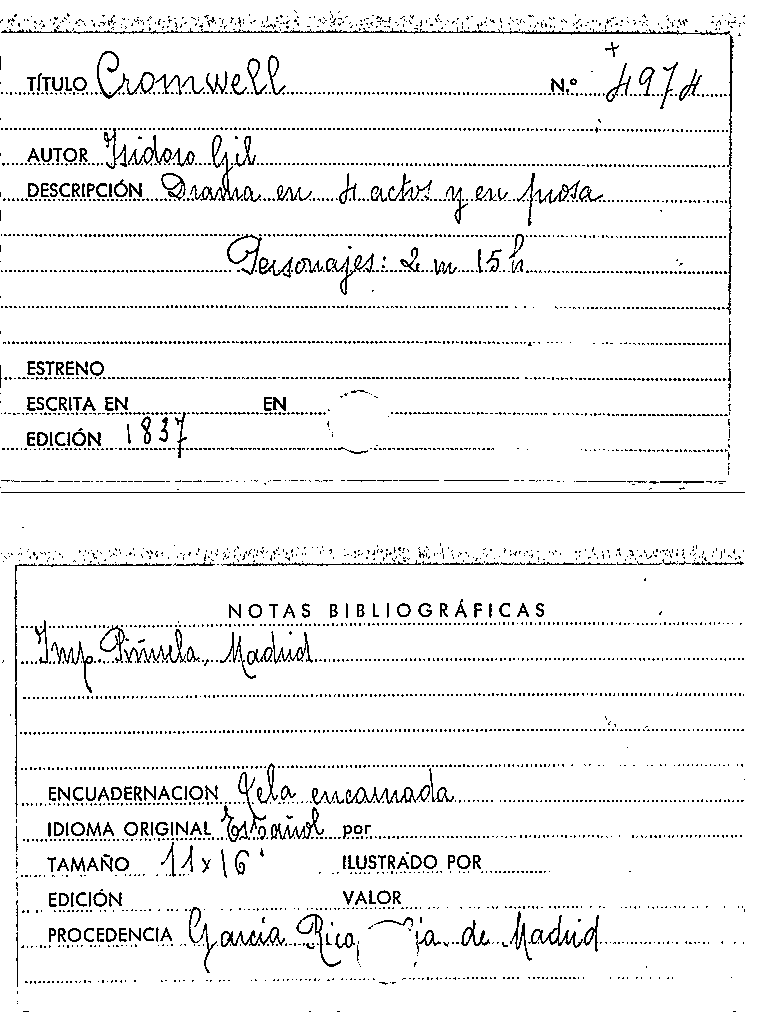 TÍTULO Cromwell N.º 4974
AUTOR Isidoro Gil
DESCRIPCIÓN Drama en 4 actos y en prosa
Personajes: 2 m 15 h
ESTRENO
ESCRITA EN EN
EDICIÓN 1837
NOTAS BIBLIOGRÁFICAS
Imp. Piñuela, Madrid
ENCUADERNACION Tela encarnada
IDIOMA ORIGINAL Español por
TAMAÑO 11 x 16 ILUSTRADO POR
EDICIÓN VALOR
PROCEDENCIA García Rico, de Madrid